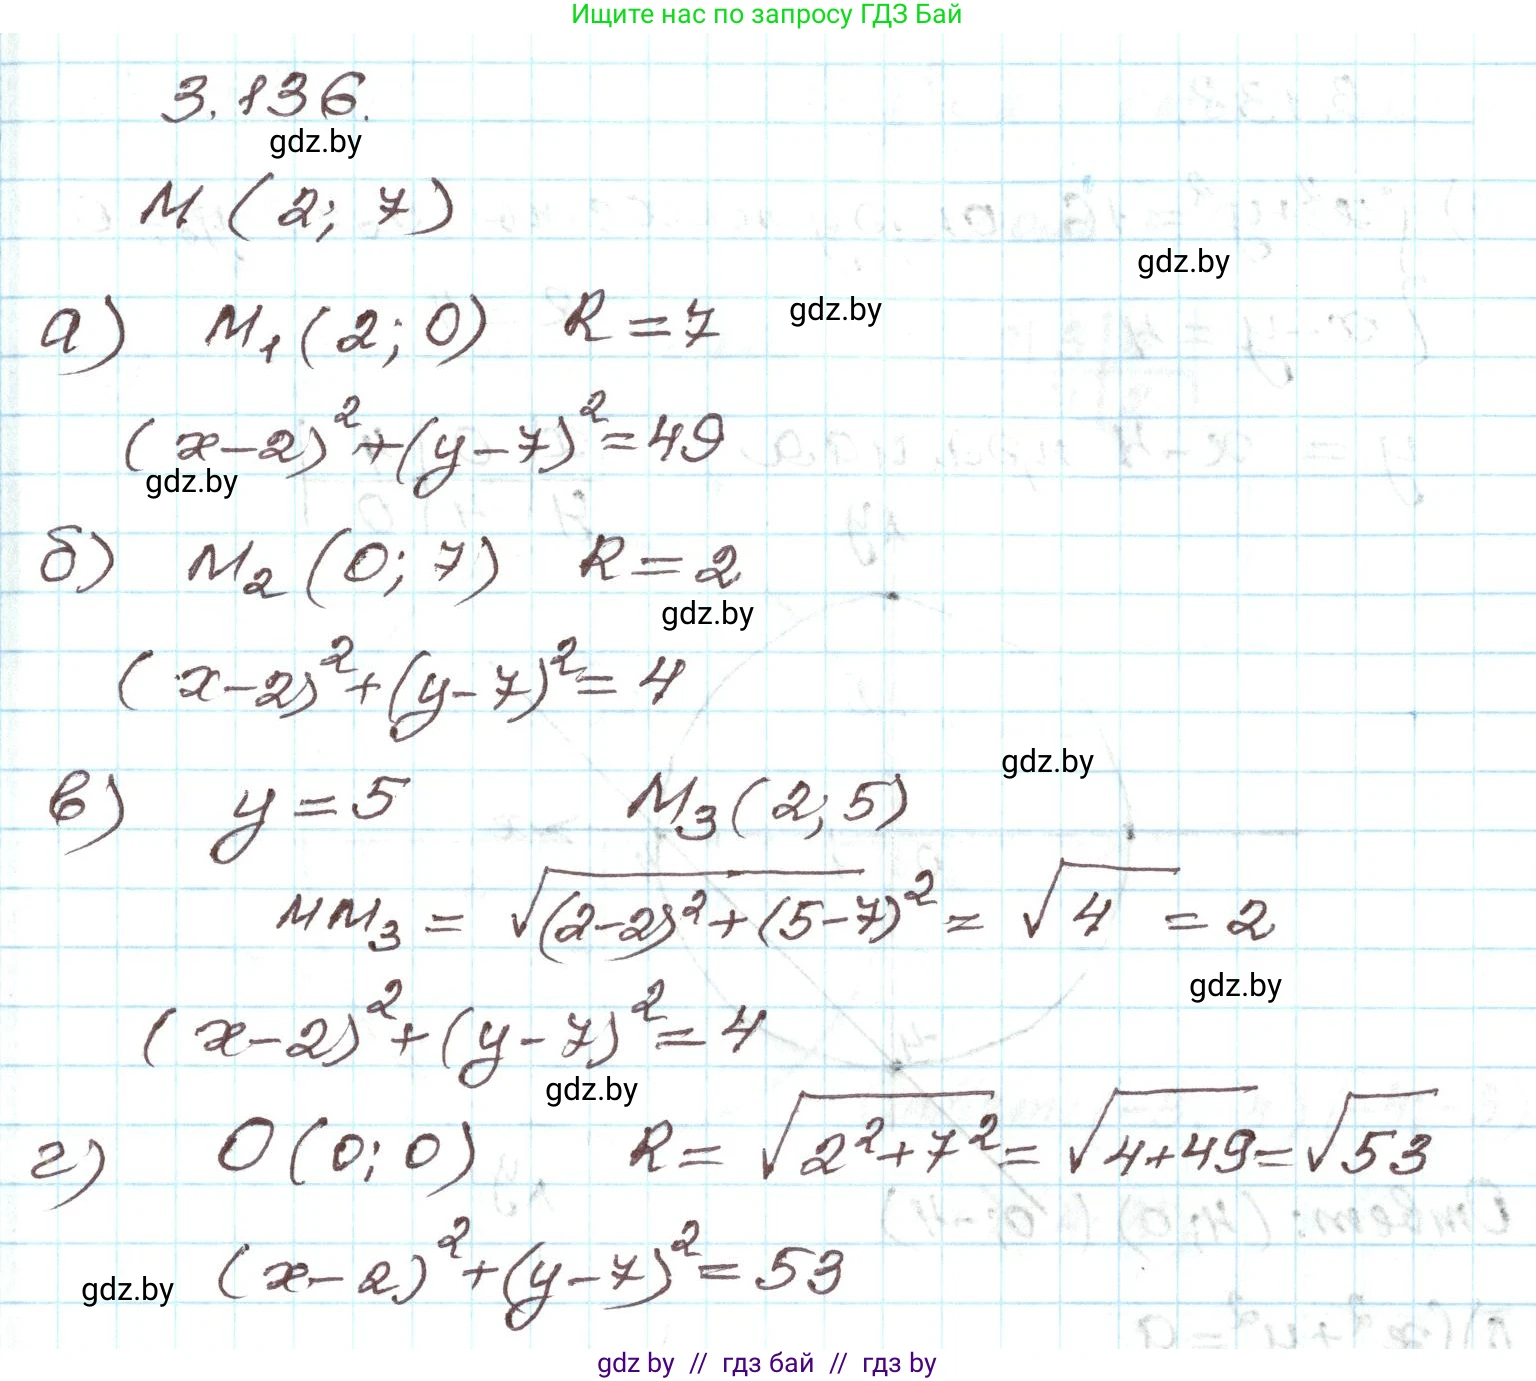 Ищите нас по запросу ГДЗ Бай
3.136.
gdz.by
M (2; 7)
gdz.by
а) M₁ (2; 0) R = 7 gdz.by
(x-2)² + (y-7)² = 49
gdz.by
б) M₂ (0; 7) R = 2
gdz.by
(x-2)² + (y-7)² = 4
gdz.by
в) y = 5 M₃ (2; 5)
MM₃ = √((2-2)² + (5-7)²) = √4 = 2
gdz.by
(x-2)² + (y-7)² = 4
gdz.by
г) O (0; 0) R = √(2²+7²) = √(4+49) = √53
(x-2)² + (y-7)² = 53
gdz.by
gdz by // гдз бай // гдз by